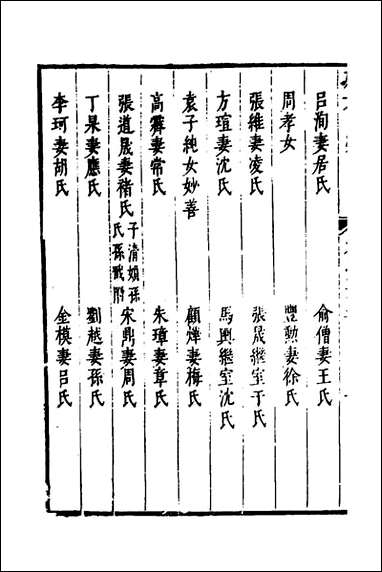 呂洵妻居氏 俞僧妻王氏
周孝女 豐勲妻徐氏
張維妻凌氏 張晟繼室于氏
方瑄妻沈氏 馬輿繼室沈氏
袁子純女妙善 顧燁妻梅氏
高霽妻常氏 朱璋妻章氏
張道晟妻褚氏 子清婦孫氏孫 宋鼎妻周氏
丁杲妻應氏 劉越妻孫氏
李珂妻胡氏 金模妻呂氏